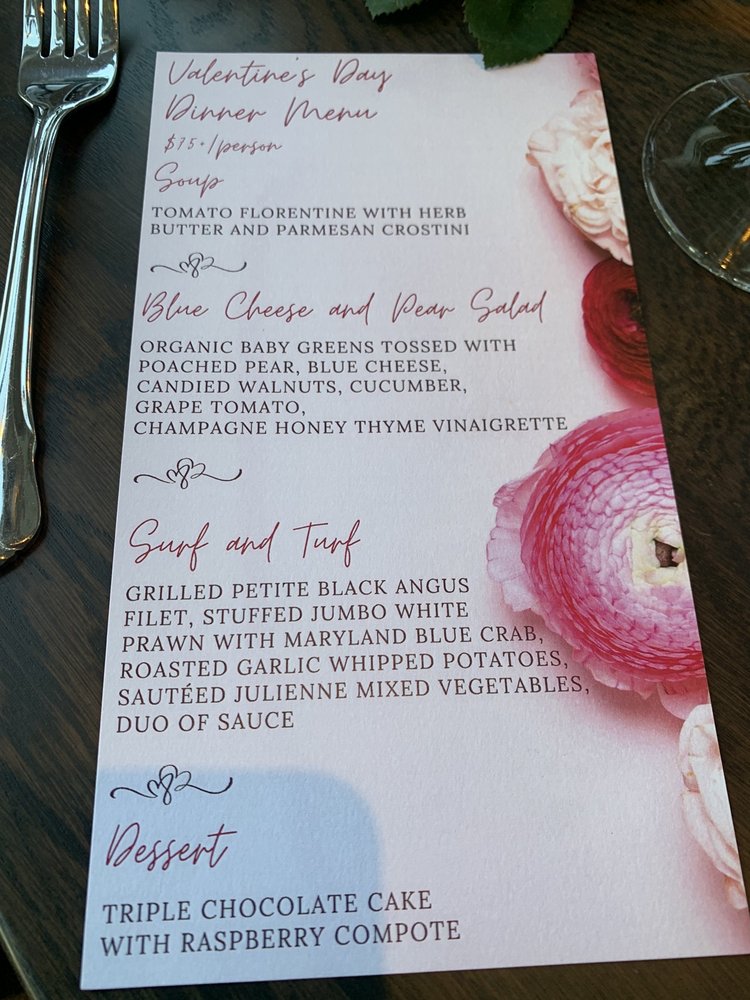 Valentine's Day
Dinner Menu
$75+/person
Soup
TOMATO FLORENTINE WITH HERB
BUTTER AND PARMESAN CROSTINI
Blue Cheese and Pear Salad
ORGANIC BABY GREENS TOSSED WITH
POACHED PEAR, BLUE CHEESE,
CANDIED WALNUTS, CUCUMBER,
GRAPE TOMATO,
CHAMPAGNE HONEY THYME VINAIGRETTE
Surf and Turf
GRILLED PETITE BLACK ANGUS
FILET, STUFFED JUMBO WHITE
PRAWN WITH MARYLAND BLUE CRAB,
ROASTED GARLIC WHIPPED POTATOES,
SAUTÉED JULIENNE MIXED VEGETABLES,
DUO OF SAUCE
Dessert
TRIPLE CHOCOLATE CAKE
WITH RASPBERRY COMPOTE